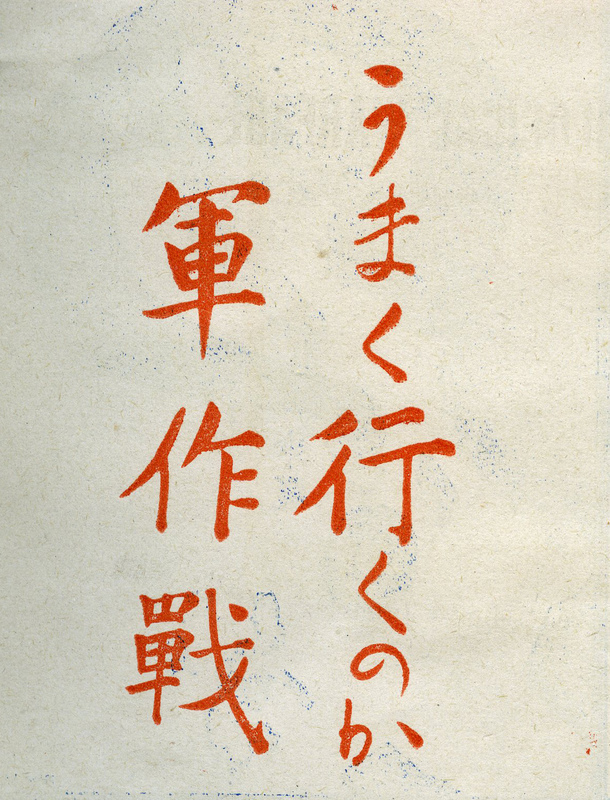 うまく行くのか
軍作戰